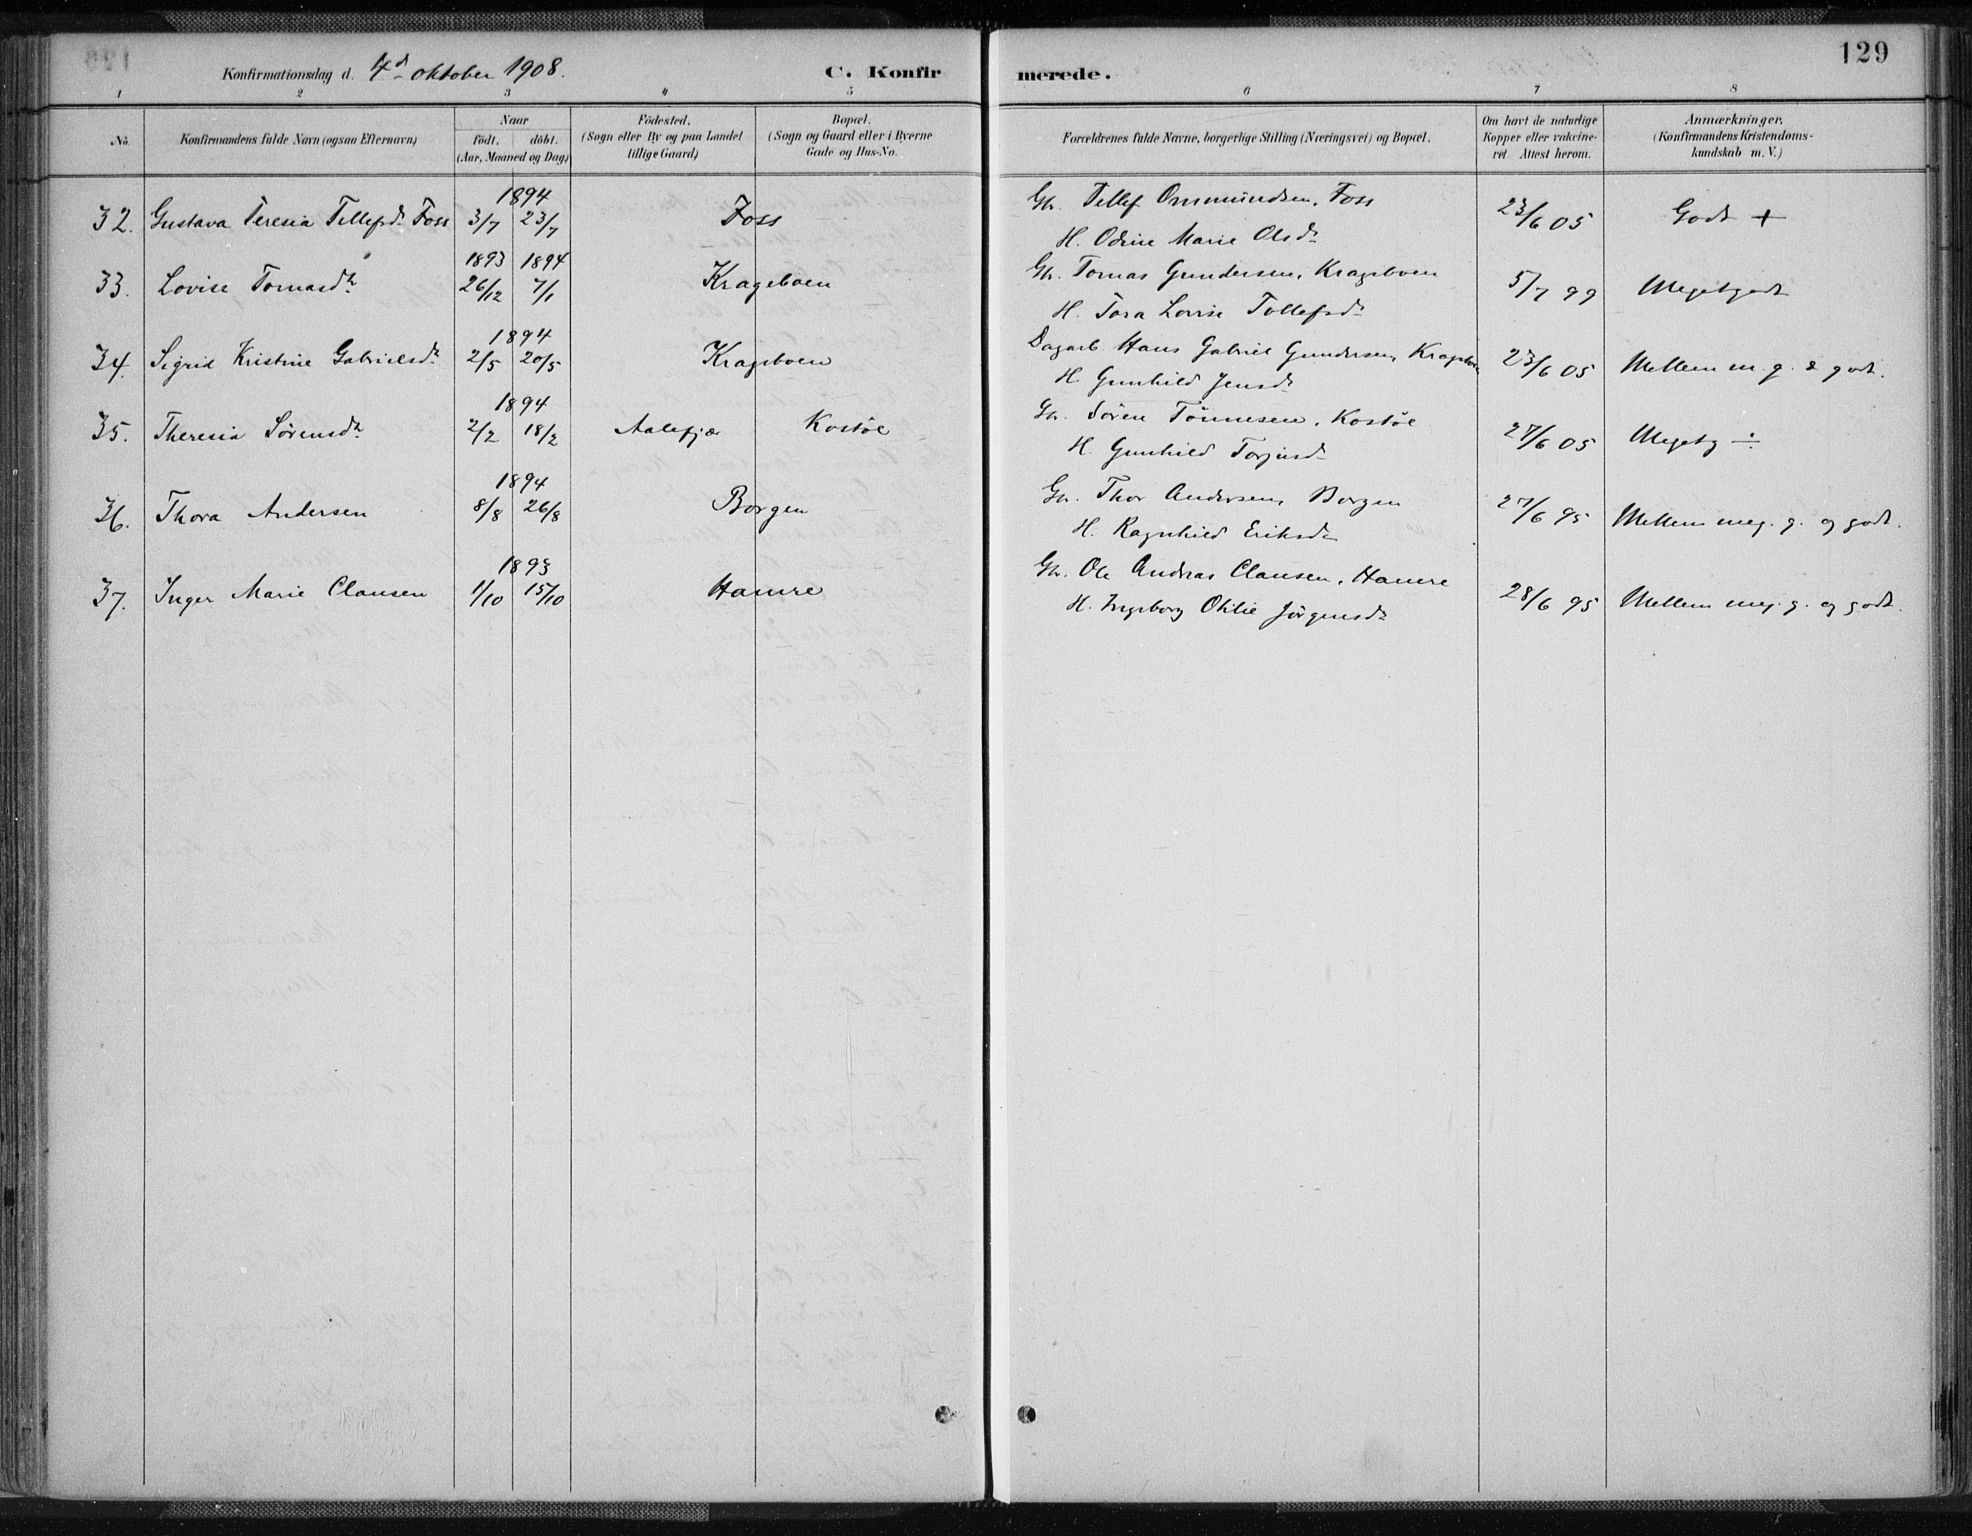 129
Konfirmationsdag d. 4d oktober 1908. C. Konfirmerede.
1 2 3 4 5 6 7 8
No. Konfirmandens fulde Navn (ogsaa Efternavn) Naar født. døbt. (Aar, Maaned og Dag) Födested. (Sogn eller By og paa Landet tillige Gaard) Bopæl. (Sogn og Gaard eller i Byerne Gade og Hus-No. Forældrenes fulde Navne, borgerlige Stilling (Næringsvei) og Bopæl. Om havt de naturlige Kopper eller vakcineret. Attest herom. Anmærkninger. (Konfirmandens Kristendomskundskab m. V.)
1894
32. Gustava Teresia Tellefsdr. Foss 3/7 23/7 Foss Gbr. Tellef Ommundsen, Foss 23/6 05 Godt +
H. Odine Marie Olsdr
1893 1894
33. Lovise Tomasdr 26/12 7/1 Kragsboen Gbr. Tomas Gundersen, Kragsboen 5/7 99 Megetgodt
H. Tora Lovise Tollefsdr
1894
34. Sigrid Kristine Gabrielsdr 2/5 20/5 Kragsboen Dagarb. Hans Gabriel Gundersen, Kragsboen 23/6 05 Mellem m. g. & godt.
H. Gunhild Jensdr
1894
35. Theresia Sørensdr 2/2 18/2 Aalefjær Kostøl Gbr. Søren Tønnesen, Kostøl 27/6 05 Megetg ÷
H. Gunhild Torjusdr
1894
36. Thora Andersen 8/8 26/8 Borgen Gbr. Thor Andersen, Borgen 27/6 95 Mellem meg. g. og godt.
H. Ragnhild Eriksdr
1893
37. Inger Marie Clausen 1/10 15/10 Hamre Gbr. Ole Andreas Clausen, Hamre 28/6 95 Mellem meg. g. og godt.
H. Ingeborg Otilie Jørgensdr